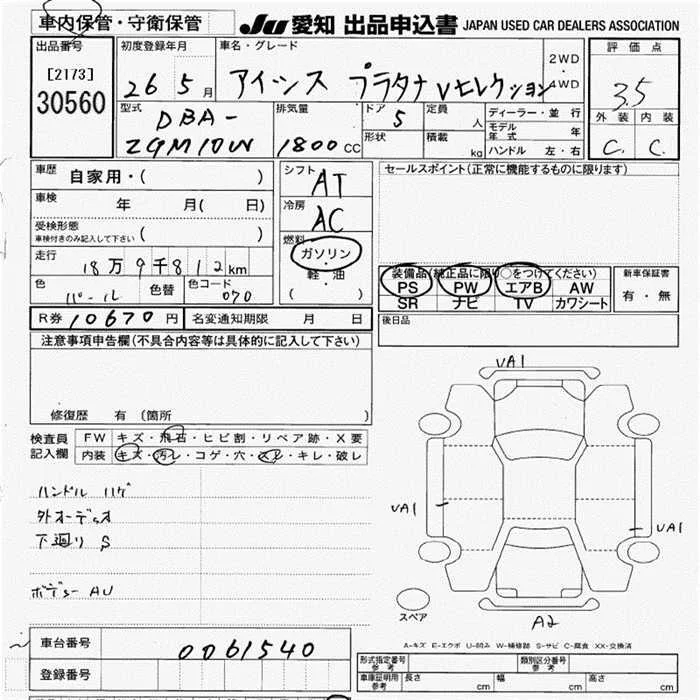 車内保管・守衛保管
JU 愛知 出品申込書 JAPAN USED CAR DEALERS ASSOCIATION
出品番号
[2173]
30560
初度登録年月
26 5月
車名・グレード
アイシス プラタナ Vセレクション
2WD
・
4WD
評価点
3.5
外装 内装
C. C.
型式
DBA-
ZGM10W
排気量
1800CC
ドア
5
定員
人
形状
積載
kg
ディーラー・並行
モデル年式 年
ハンドル 左・右
車歴
自家用・( )
車検
年 月( 日)
受検形態
車検付きのみ記入して下さい ( )
走行
18万9千812km
色
パール
色替
色コード
070
シフト
AT
冷房
AC
燃料
ガソリン
・
軽・油
( )
セールスポイント(正常に機能するものに限ります)
装備品(純正品に限り○をつけてください)
PS PW エアB AW
SR ナビ TV カワシート
新車保証書
有・無
後日品
R券 10670円 名変通知期限 月 日
注意事項申告欄(不具合内容等は具体的に記入して下さい)
修復歴 有(箇所 )
検査員
記入欄
FW キズ・飛石・ヒビ割・リペア跡・X要
内装 キズ・汚レ・コゲ・穴・スレ・キレ・破レ
ハンドル ハゲ
外オーディオ
下廻り S
ボデー AU
UA1
UA1
UA1
A2
スペア
A-キズ E-エクボ U-凹み W-補修跡 S-サビ C-腐食 XX-交換済
車台番号
0061540
登録番号
形式指定番号
参考
類別区分番号
参考
車庫証明用
参考
長さ cm 幅 cm 高さ cm